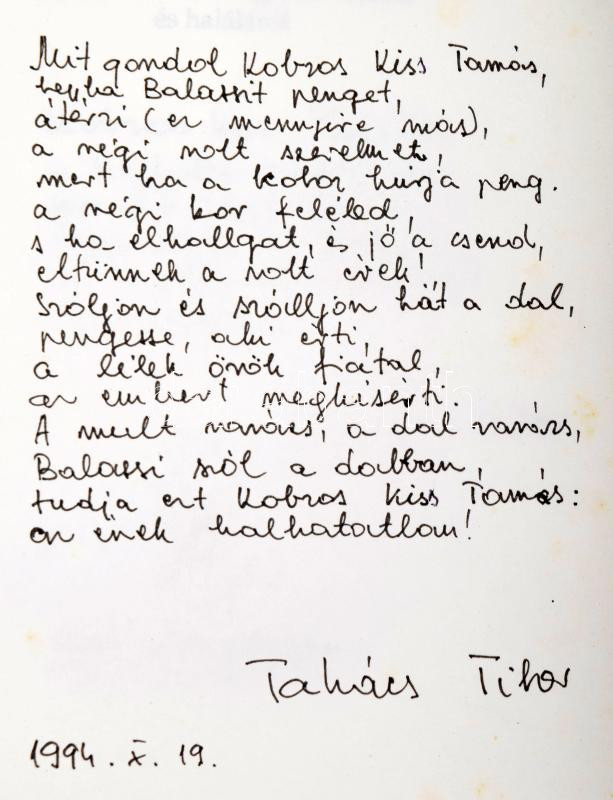 és halálá
Mit gondol Kobzos Kiss Tamás,
hogyha Balassit penget,
átérzi (ez mennyire más),
a régi volt szerelmet,
mert ha a koboz húrja peng.
a régi kor feléled,
s ha elhallgat, és jő a csend,
eltűnnek a volt évek!
Szóljon és szálljon hát a dal,
pengesse, aki érti,
a lélek örök fiatal,
az embert megkísérti.
A mult varázs, a dal varázs,
Balassi szól a dalban,
tudja ezt Kobzos Kiss Tamás:
az ének halhatatlan!
Takács Tibor
1994. X. 19.